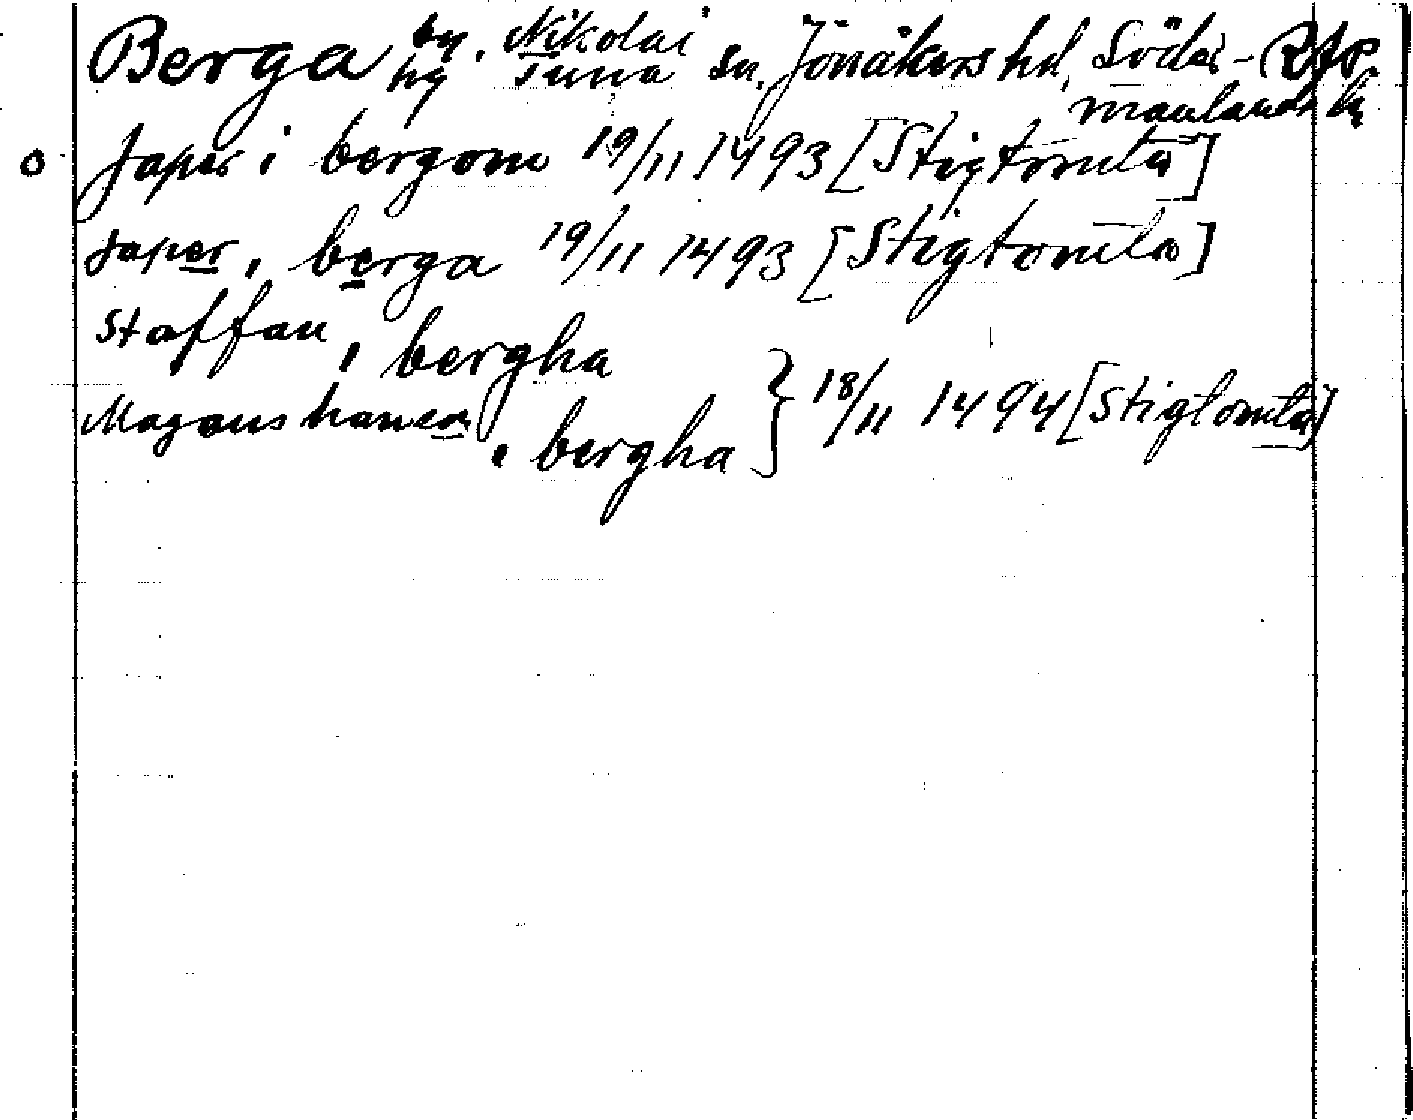 Berga by. Nikolai sn, Jönåkers hd, Söder- Rfp.
hg Tuna manlands ln
o Japer i bergom 19/11 1493 [Stigtomta]
Japer i berga 19/11 1493 [Stigtomta]
Staffan i bergha
Magnus hanen i bergha } 18/11 1494 [Stigtomta]